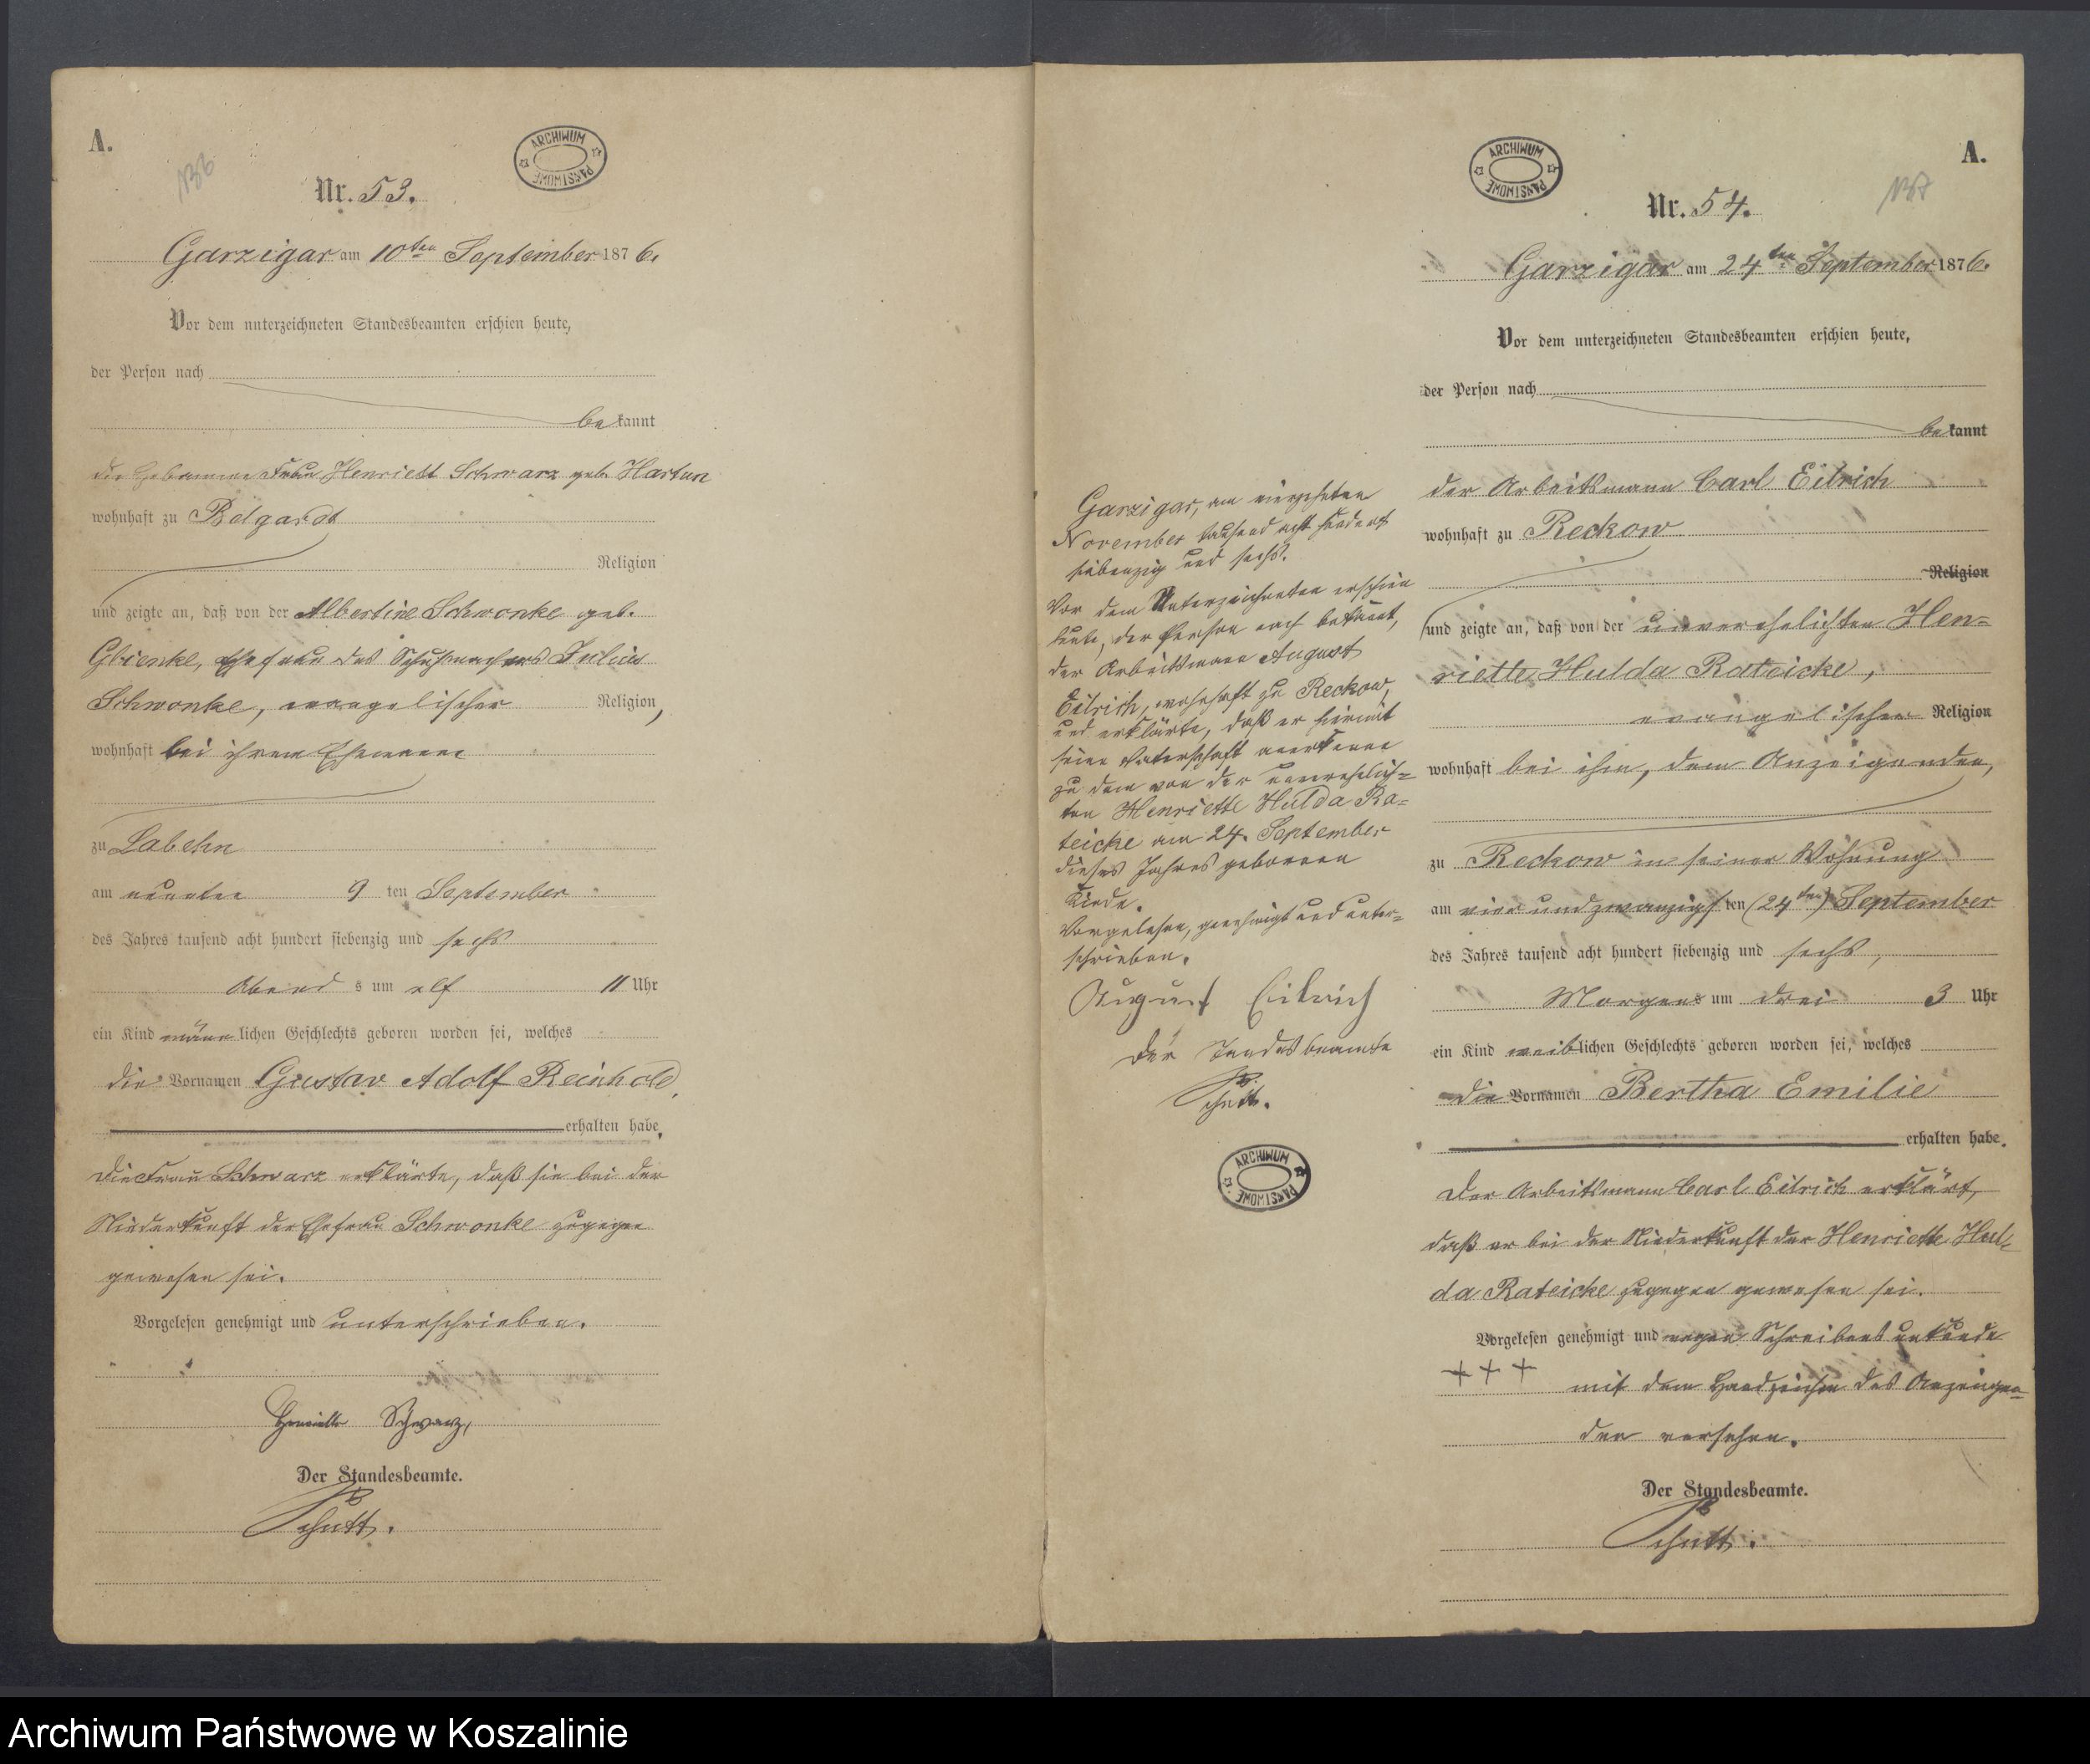 A.
136
ARCHIWUM PAŃSTWOWE
Nr. 53.
Garzigar am 10ten September 1876.
Vor dem unterzeichneten Standesbeamten erschien heute,
der Person nach
bekannt
die Hebamme Frau Henriett Schwarz geb. Hartun
wohnhaft zu Belgardt
Religion
und zeigte an, daß von der Albertine Schwonke geb.
Glienke, Ehefrau des Schuhmachers Julius
Schwonke, evangelischer Religion,
wohnhaft bei ihrem Ehemann
zu Labehn
am neunten 9 ten September
des Jahres tausend acht hundert siebenzig und sechs
Abends um elf 11 Uhr
ein Kind männlichen Geschlechts geboren worden sei, welches
die Vornamen Gustav Adolf Reinhold,
erhalten habe.
Die Frau Schwarz erklärte, daß sie bei der
Niederkunft der Ehefrau Schwonke zugegen
gewesen sei.
Vorgelesen genehmigt und unterschrieben.
Henriette Schwarz,
Der Standesbeamte.
Schutt.
A.
137
ARCHIWUM PAŃSTWOWE
Nr. 54.
Garzigar am 24ten September 1876.
Vor dem unterzeichneten Standesbeamten erschien heute,
der Person nach
bekannt
der Arbeitsmann Carl Eilrich
wohnhaft zu Reckow
Religion
und zeigte an, daß von der unverehelichten Hen-
riette Hulda Rateicke,
evangelischer Religion
wohnhaft bei ihm, dem Anzeigenden,
zu Reckow in seiner Wohnung
am vier und zwanzigsten (24ten) September
des Jahres tausend acht hundert siebenzig und sechs,
Morgens um drei 3 Uhr
ein Kind weiblichen Geschlechts geboren worden sei, welches
die Vornamen Bertha Emilie
erhalten habe.
Der Arbeitsmann Carl Eilrich erklärt,
daß er bei der Niederkunft der Henriette Hul-
da Rateicke zugegen gewesen sei.
Vorgelesen genehmigt und wegen Schreibensunkunde
+++ mit dem Handzeichen des Anzeigen-
den versehen.
Der Standesbeamte.
Schutt.
Garzigar, am vierzehnten
November tausend acht hundert
siebenzig und sechs.
Vor dem Unterzeichneten erschien
heute, der Person nach bekannt,
der Arbeitsmann August
Eilrich, wohnhaft zu Reckow,
und erklärte, daß er hiermit
seine Vaterschaft anerkenne
zu dem von der unverehelich-
ten Henriette Hulda Ra-
teicke am 24. September
dieses Jahres geborenen
Kinde.
Vorgelesen, genehmigt und unter-
schrieben.
August Eilrich
Der Standesbeamte
Schutt.
ARCHIWUM PAŃSTWOWE
Archiwum Państwowe w Koszalinie